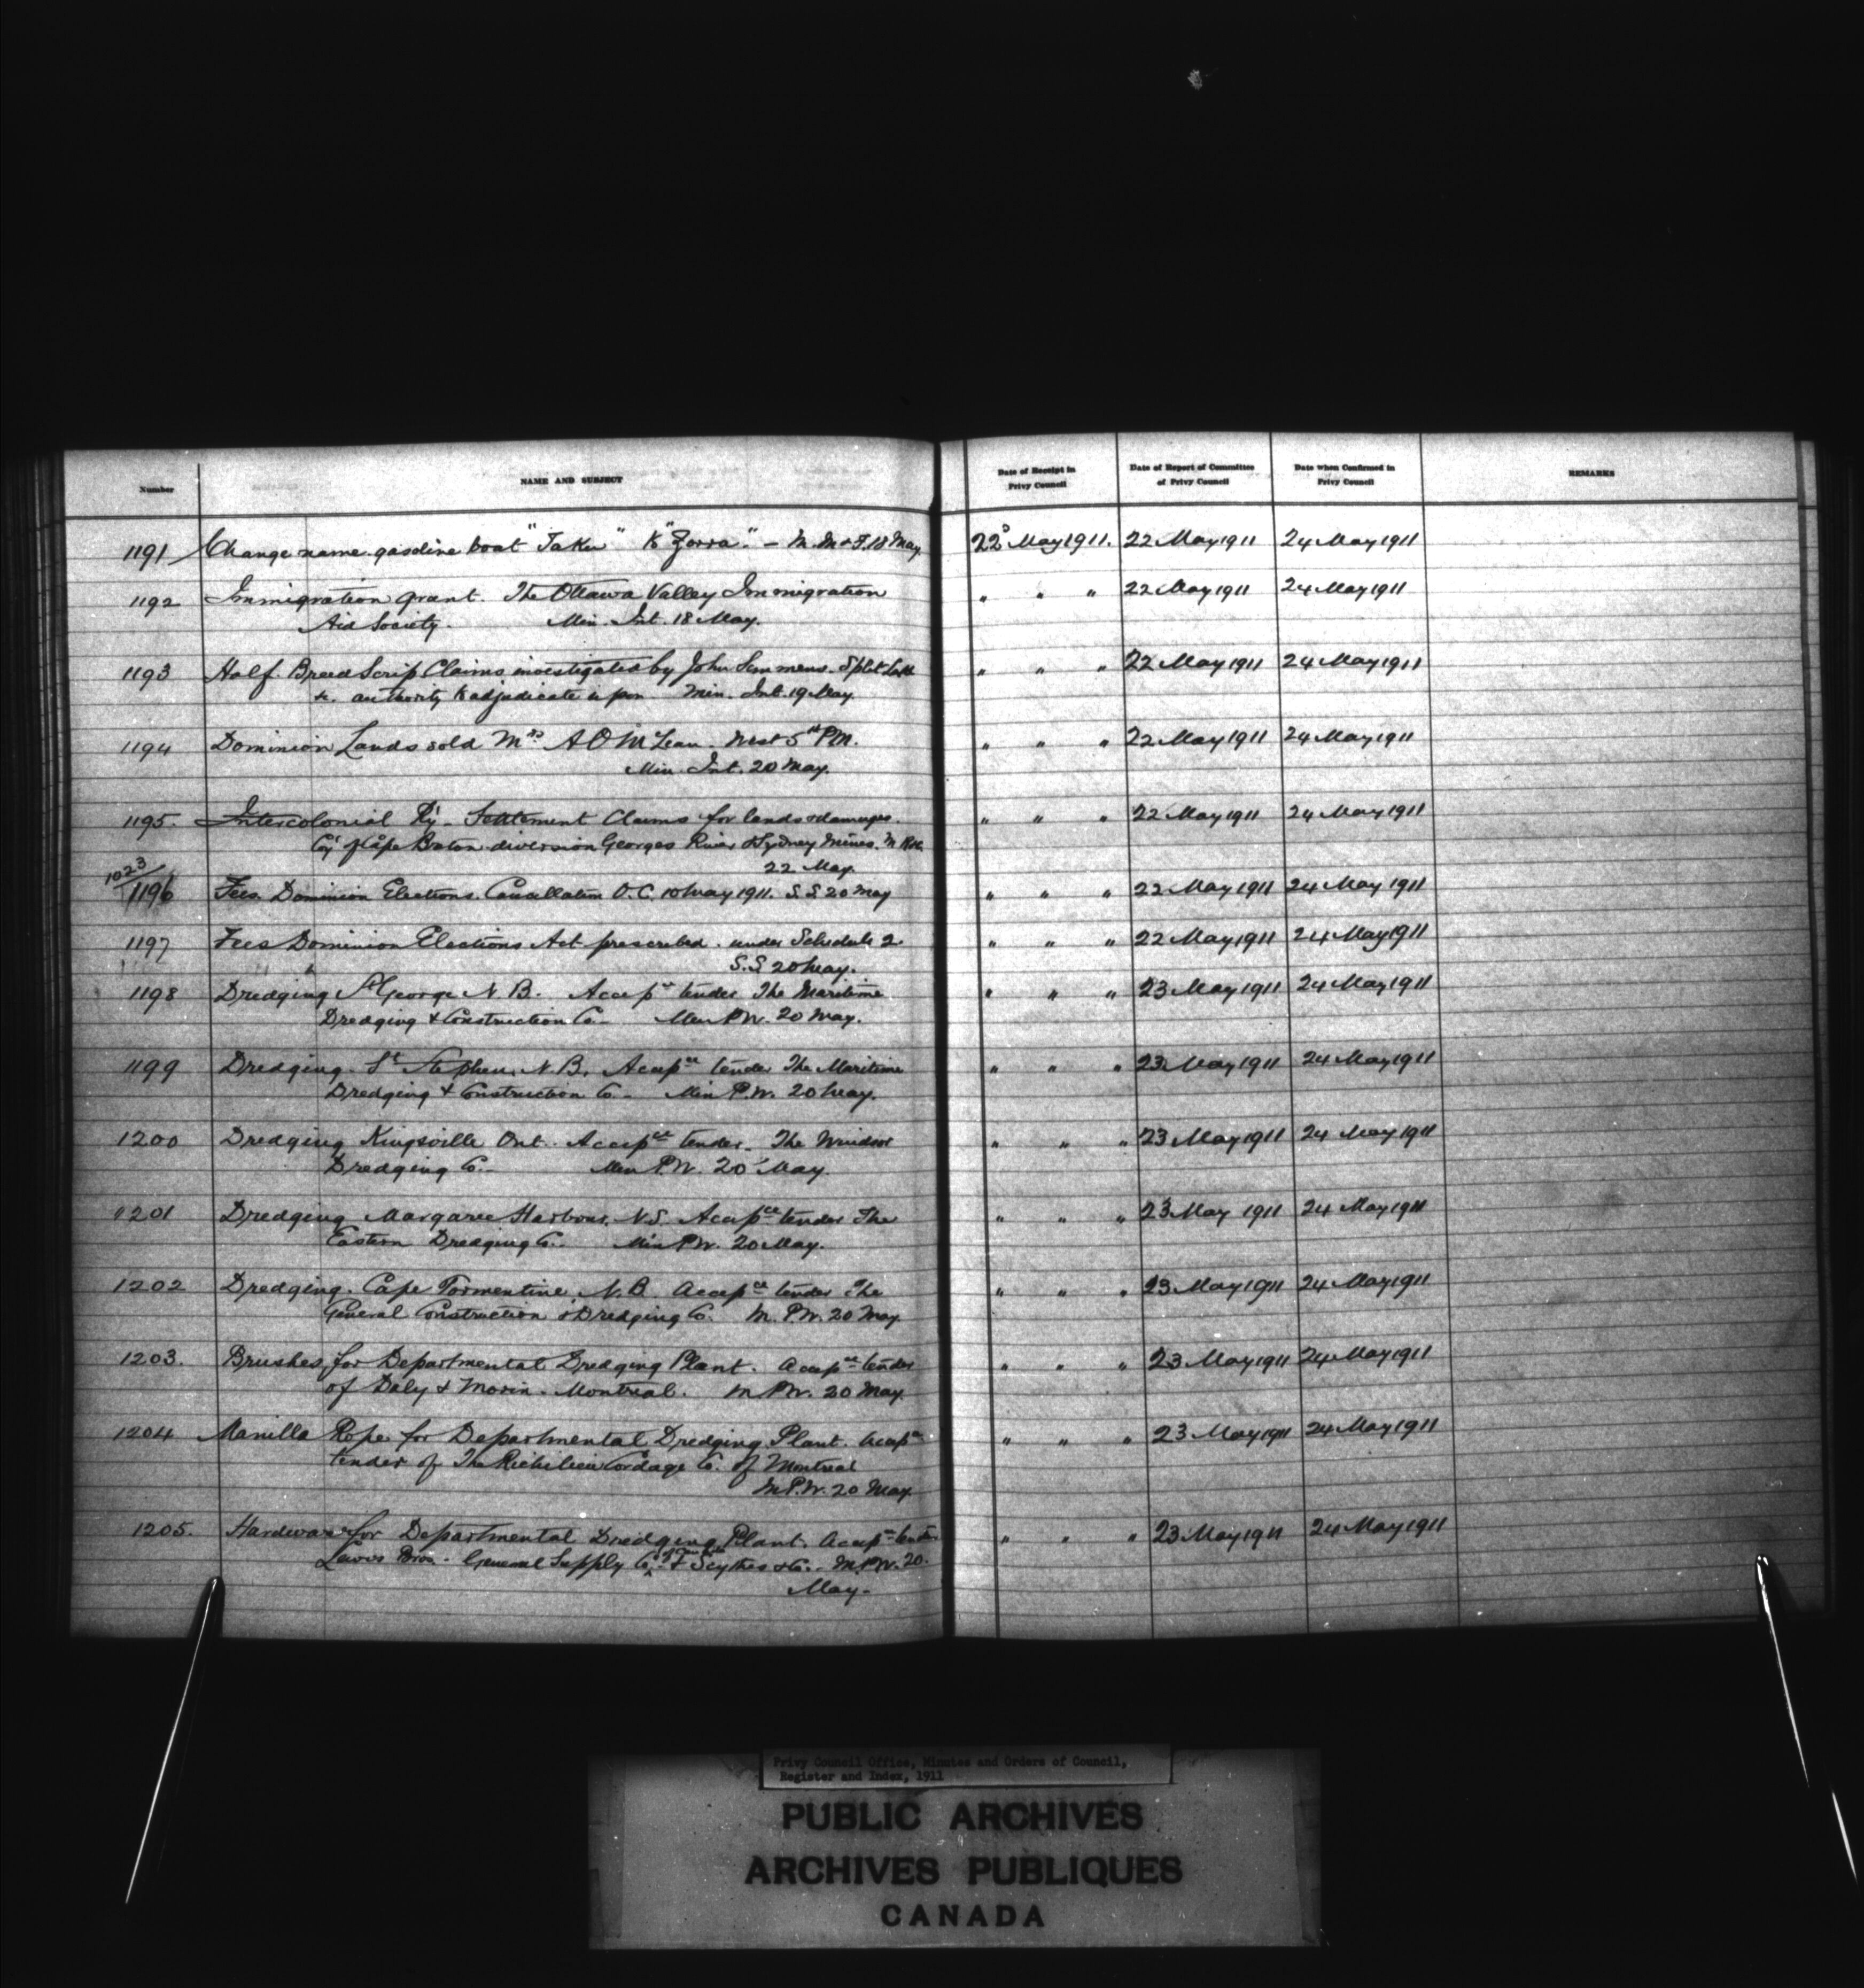 Number NAME AND SUBJECT Date of Receipt in Privy Council Date of Report of Committee of Privy Council Date when Confirmed in Privy Council REMARKS
1191 Change name gasoline boat "Taku" to "Zorra" - M. M & F. 18 May 22d May 1911. 22 May 1911 24 May 1911
1192 Immigration grant. The Ottawa Valley Immigration " " " 22 May 1911 24 May 1911
Aid Society. Min. Int. 18 May.
1193 Half Breed Scrip Claims investigated by John Semmens. Split Lake " " " 22 May 1911 24 May 1911
&c. authority to adjudicate upon Min. Int. 19 May.
1194 Dominion Lands sold Mrs A O McLean. West 5th PM. " " " 22 May 1911 24 May 1911
Min. Int. 20 May.
1195. Intercolonial Ry. Settlement Claims for lands & damages. " " " 22 May 1911 24 May 1911
Cy of Cape Breton diversion Georges River & Sydney Mines. M R&C.
22 May.
1023/
1196 Fees. Dominion Elections. Cancellation O.C. 10 May 1911. S.S 20 May " " " 22 May 1911 24 May 1911
1197 Fees Dominion Elections Act prescribed. under Schedule 2. " " " 22 May 1911 24 May 1911
S.S 20 May.
1198 Dredging St George N.B. Accepce tender The Maritime " " " 23 May 1911 24 May 1911
Dredging & Construction Co. Min P.W. 20 May.
1199 Dredging. St Stephen. N.B. Accepce tender The Maritime " " " 23 May 1911 24 May 1911
Dredging & Construction Co. Min P.W. 20 May.
1200 Dredging Kingsville Ont. Accepce tender. The Windsor " " " 23 May 1911 24 May 1911
Dredging Co. Min P.W. 20 May.
1201 Dredging Margaree Harbour, N.S. Accepce tender The " " " 23 May 1911 24 May 1911
Eastern Dredging Co. Min P.W. 20 May.
1202 Dredging. Cape Tormentine, N.B. Accepce tender The " " " 23 May 1911 24 May 1911
General Construction & Dredging Co. M. P.W. 20 May
1203. Brushes for Departmental Dredging Plant. Accepce tender " " " 23 May 1911 24 May 1911
of Daly & Morin. Montreal. M P.W. 20 May.
1204 Manilla Rope for Departmental Dredging Plant. Accepce " " " 23 May 1911 24 May 1911
tender of The Richelieu Cordage Co. of Montreal
M P.W. 20 May
1205. Hardware for Departmental Dredging Plant. Accepce tender " " " 23 May 1911 24 May 1911
Lewis Bros. General Supply Co. & Scythes & Co. M.P.W. 20.
May.
Privy Council Office, Minutes and Orders of Council,
Register and Index, 1911
PUBLIC ARCHIVES
ARCHIVES PUBLIQUES
CANADA